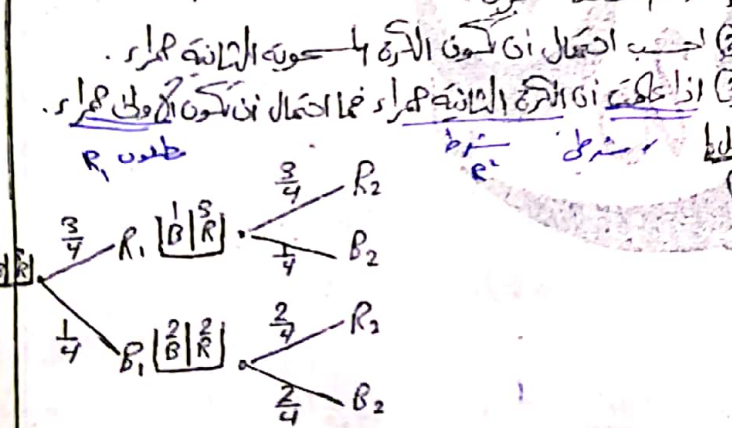 ② احسب احتمال أن تكون الكرة المسحوبة الثانية حمراء.
③ اذا علمت أن الكرة الثانية حمراء فما احتمال أن تكون الأولى حمراء.
شرطي شرط مطلوب R₁
R₂
3/4 R₂
3/4 R₁ 1 B | 3 R
1/4 B₂
1/4 B₁ 2 B | 2 R
2/4 R₂
2/4 B₂